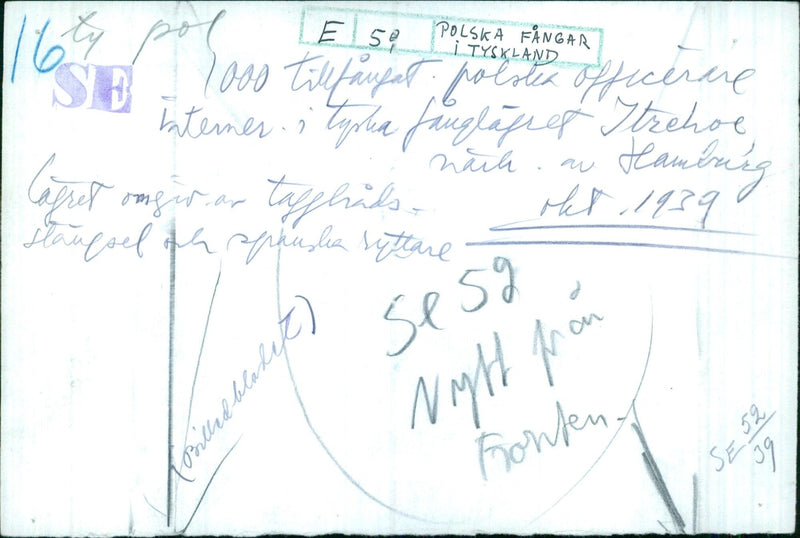 16
ty pol
SE
E 59
POLSKA FÅNGAR
I TYSKLAND
1000 tillfångat. polska officerare
interner. i tyska fånglägret Itzehoe
närh. av Hamburg
lägret omgiv. av taggtråds-
okt. 1939
stängsel och spanska ryttare
(Billedbladet)
Se 52
Nytt från
Fronten
SE 52/39